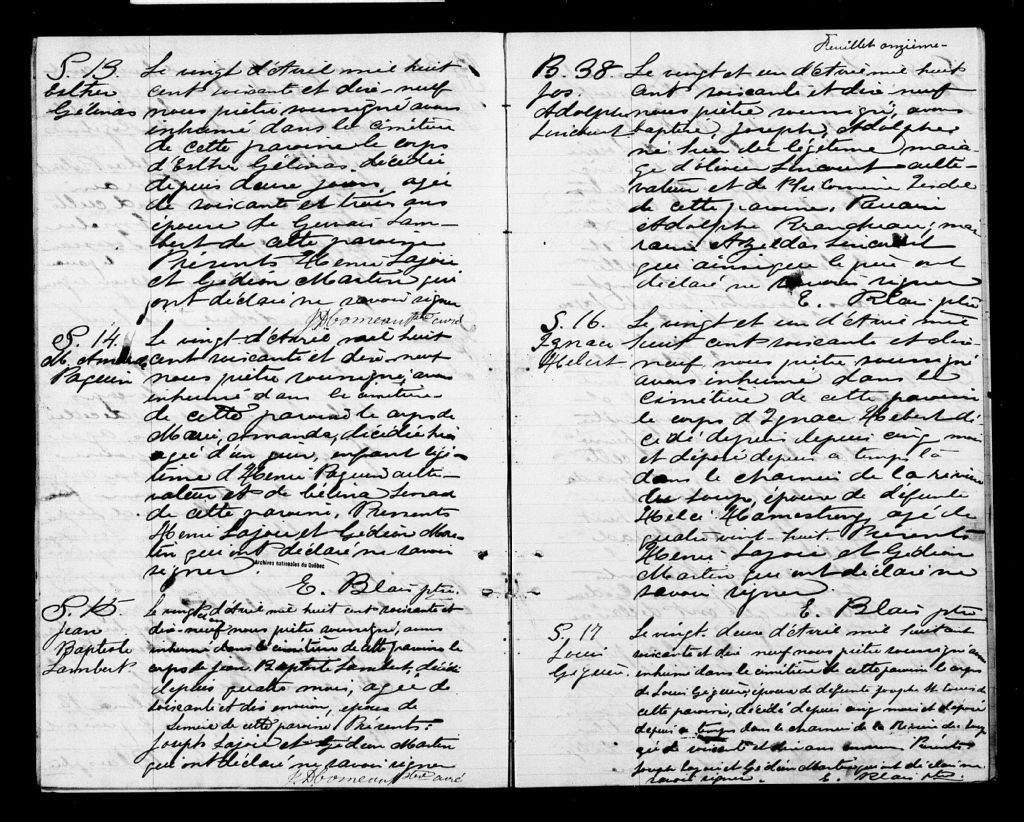 S. 13.
Esther
Gélinas
Le vingt d'Avril mil huit
cent soixante et dix-neuf
nous prêtre soussigné avons
inhumé dans le cimetière
de cette paroisse le corps
d'Esther Gélinas, décédée
depuis deux jours, agée
de soixante et trois ans
épouse de Gervais Lam-
bert de cette paroisse
Présents Henri Lajoie
et Gédéon Martin qui
ont déclaré ne savoir signer
Comeau Ptre curé
S. 14.
M. Amanda
Paquin
Le vingt d'Avril mil huit
cent soixante et dix-neuf
nous prêtre soussigné, avons
inhumé dans le cimetière
de cette paroisse le corps de
Marie, Amanda, décédée hier
agée d'un jour, enfant légi-
time d'Henri Paquin culti-
vateur et de Célina
de cette paroisse, Présents
Henri Lajoie et Gédéon Mar-
tin qui ont déclaré ne savoir
signer.
Archives nationales du Québec
E. Blais ptre.
S. 15.
Jean
Baptiste
Lambert.
Le vingt d'Avril mil huit cent soixante et
dix-neuf nous prêtre soussigné, avons
inhumé dans le cimetière de cette paroisse le
corps de Jean Baptiste Lambert, décédé
depuis quatre mois, agé de
soixante et dix environ, époux de
de cette paroisse Présents:
Joseph Lajoie et Gédéon Martin
qui ont déclaré ne savoir signer
Comeau Ptre curé
Feuillet onzième-
B. 38
Jos
Adolphe
Le vingt et un d'Avril mil huit
cent soixante et dix-neuf
nous prêtre soussigné, avons
baptisé, Joseph, Adolphe
né hier du légitime maria-
ge d'Olivier culti-
vateur et de
de cette paroisse, Parrain
Adolphe mar-
raine Azelda
qui ainsi que le père ont
déclaré ne savoir signer
E. Blais ptre
S. 16.
Ignace
Hebert
Le vingt et un d'Avril mil
huit cent soixante et dix
neuf, nous prêtre soussigné
avons inhumé dans le
cimetière de cette paroisse
le corps d'Ignace Hebert dé-
cédé depuis depuis cinq mois
et déposé depuis ce temps là
dans le charnier de la rivière
du Loup, époux de défunte
agé de
quatre vint-huit. Présents
Henri Lajoie et Gédéon
Martin qui ont déclaré ne
savoir signer
E. Blais ptre
S. 17
Louis
Giguère.
Le vingt-deux d'Avril mil huit cent
soixante et dix neuf nous prêtre soussigné avons
inhumé dans le cimetière de cette paroisse le corps
de Louis Giguère, époux de défunte Josephte
cette paroisse, décédé depuis cinq mois et déposé
depuis ce temps dans le charnier de la Rivière du Loup
agé de soixante et dix ans environ Présents
Joseph Lajoie et Gédéon Martin qui ont déclaré ne
savoir signer. E. Blais ptre.